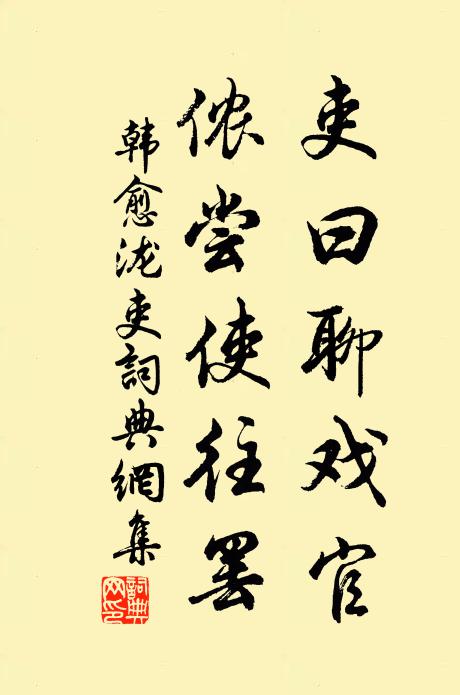 吏曰聊戏官
侬尝使往罢
韩愈泷吏詞典網集
詞典网印